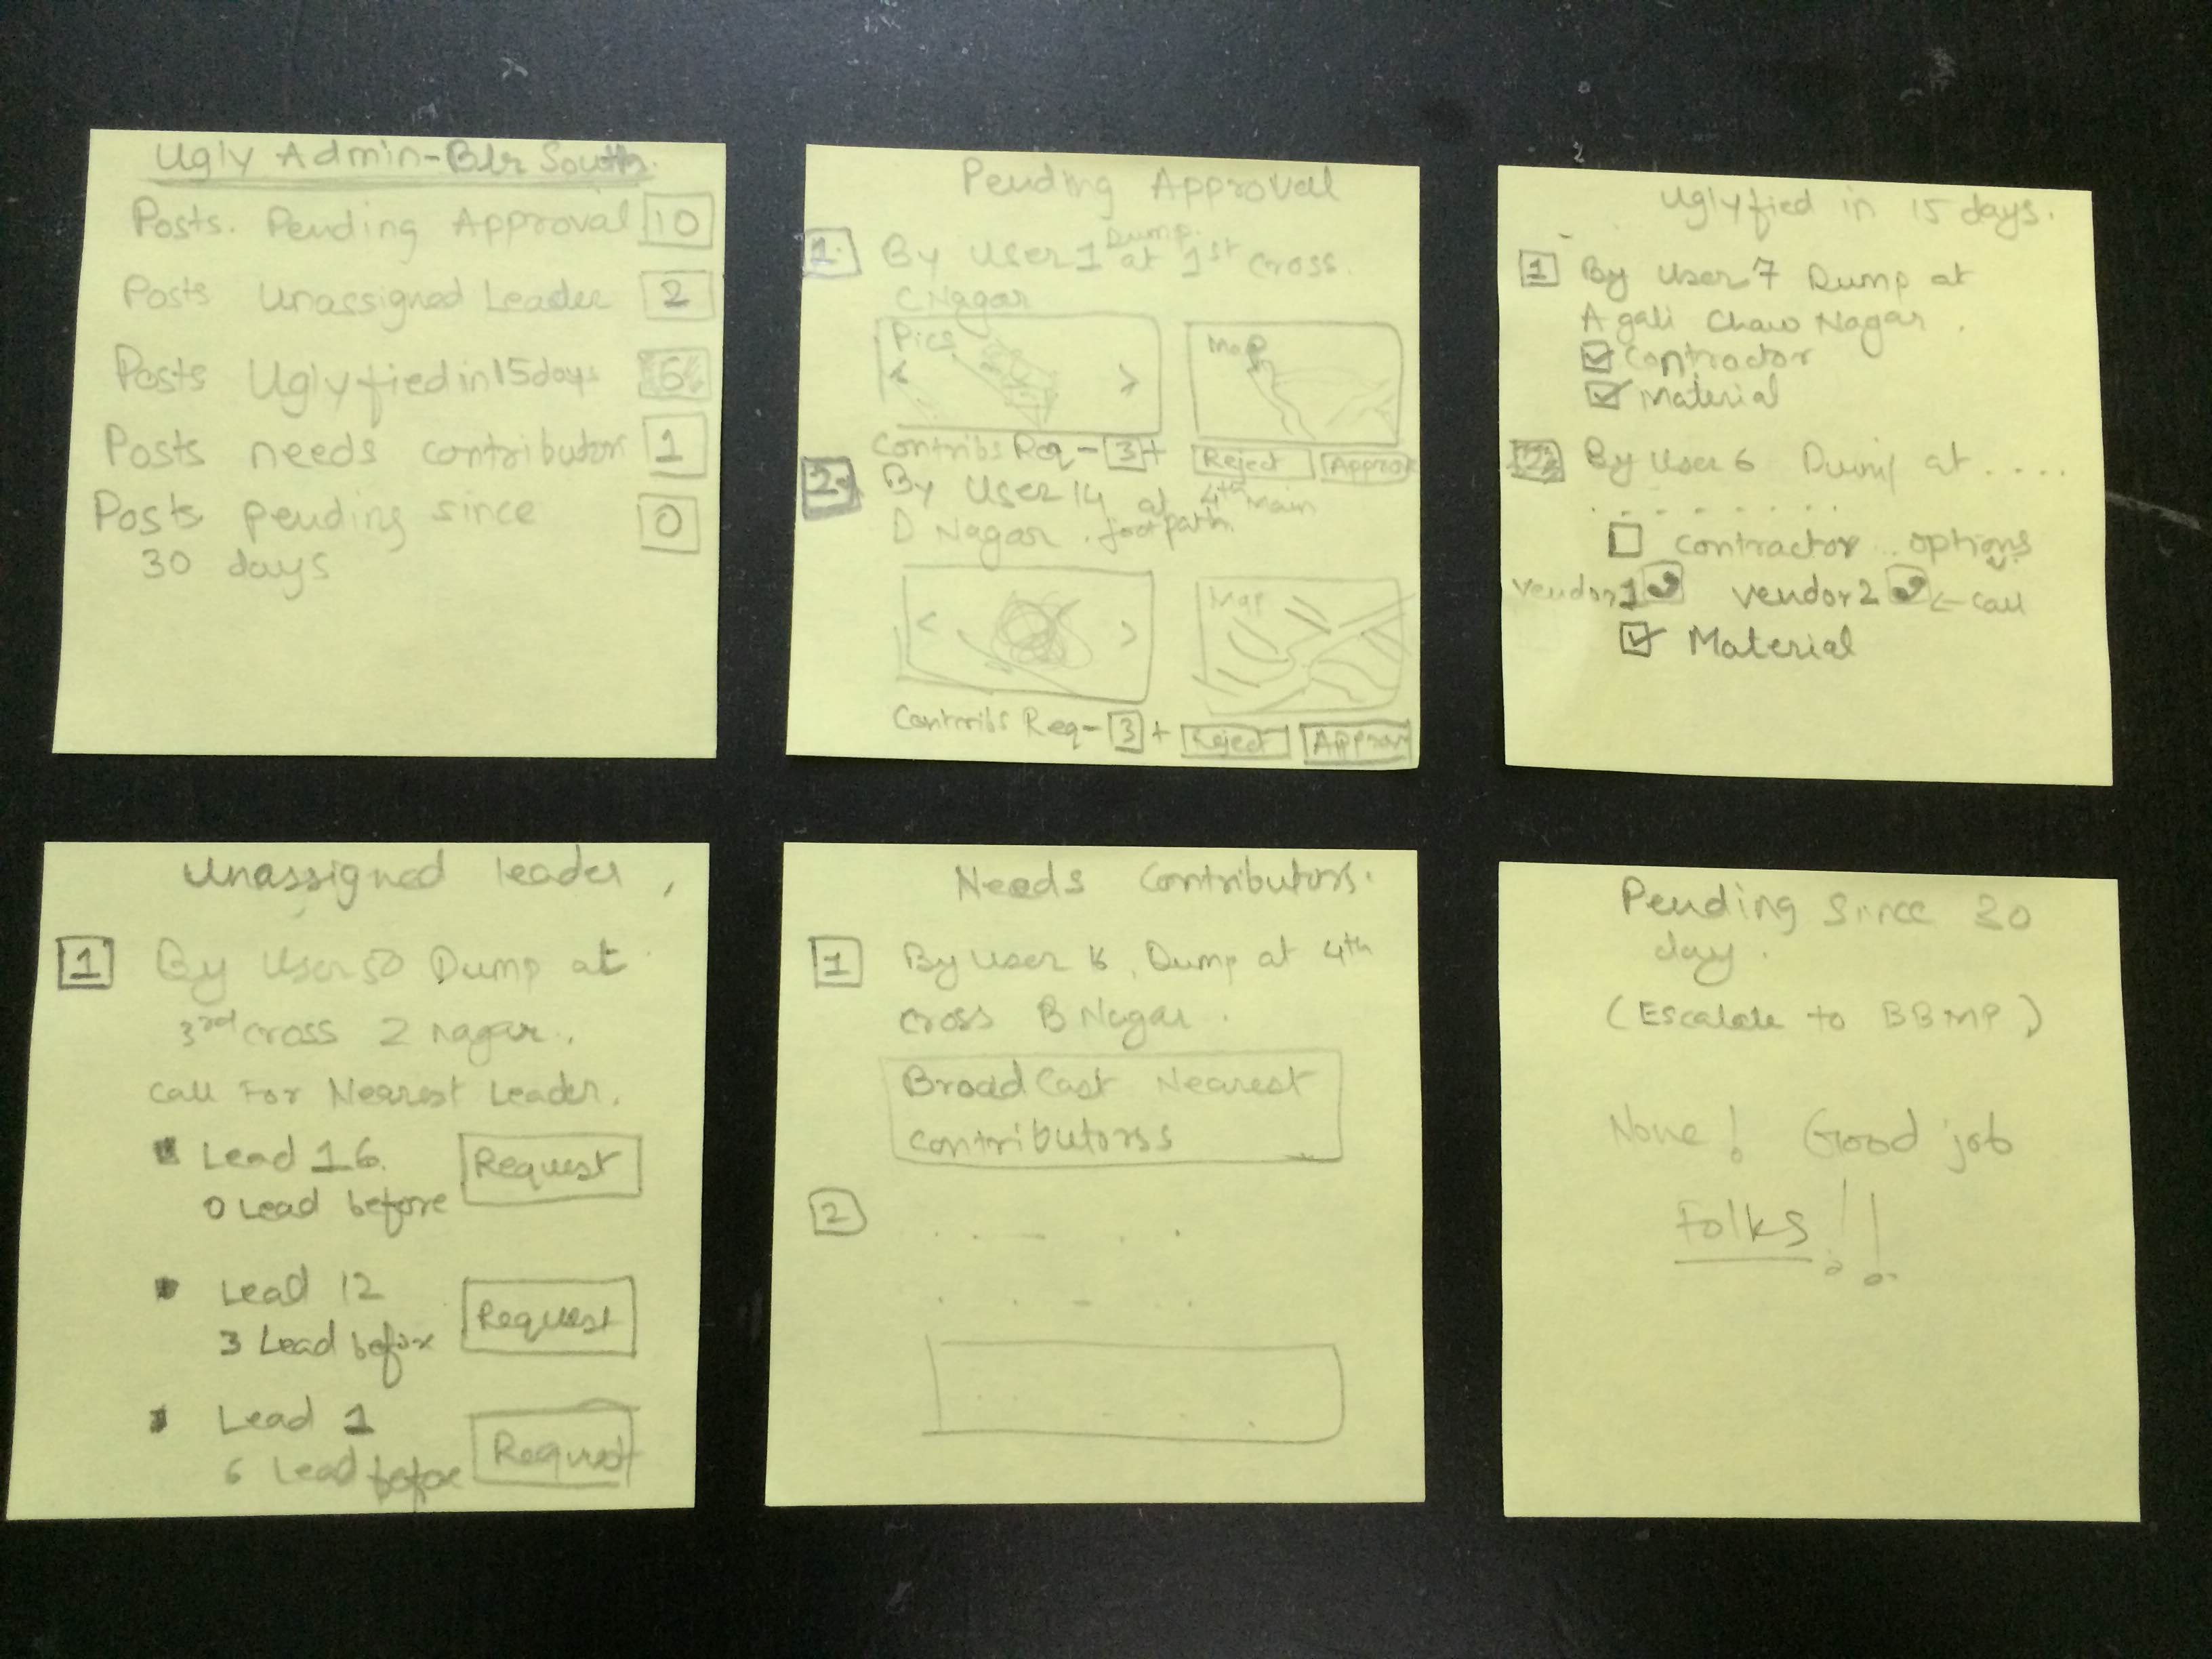 Ugly Admin-Blr South.
Posts. Pending Approval 10
Posts Unassigned Leader 2
Posts Uglyfied in 15 days 5
Posts needs contributors 1
Posts pending since 0
30 days
Pending Approval
1. By User 1 Dump at 1st cross.
C Nagar
Pics Map
< >
Contribs Req - 3 + Reject Approve
2. By User 14 at 4th Main
D Nagar. footpath
< > Map
Contribs Req - 3 + Reject Approve
Uglyfied in 15 days.
1 By User 7 Dump at
A gali Chaw Nagar.
Contractor
Material
2 By User 6 Dump at ....
........
contractor .. options
vendor 1 vendor 2 <- call
Material
Unassigned leader,
1 By User 50 Dump at
3rd cross Z nagar.
Call For Nearest Leader.
Lead 16. Request
0 Lead before
Lead 12 Request
3 Lead before
Lead 1 Request
6 Lead before
Needs Contributors.
1 By User 16, Dump at 4th
cross B Nagar.
BroadCast Nearest
contributorss
2
Pending Since 30
day.
(Escalate to BBMP)
None! Good job
Folks!!